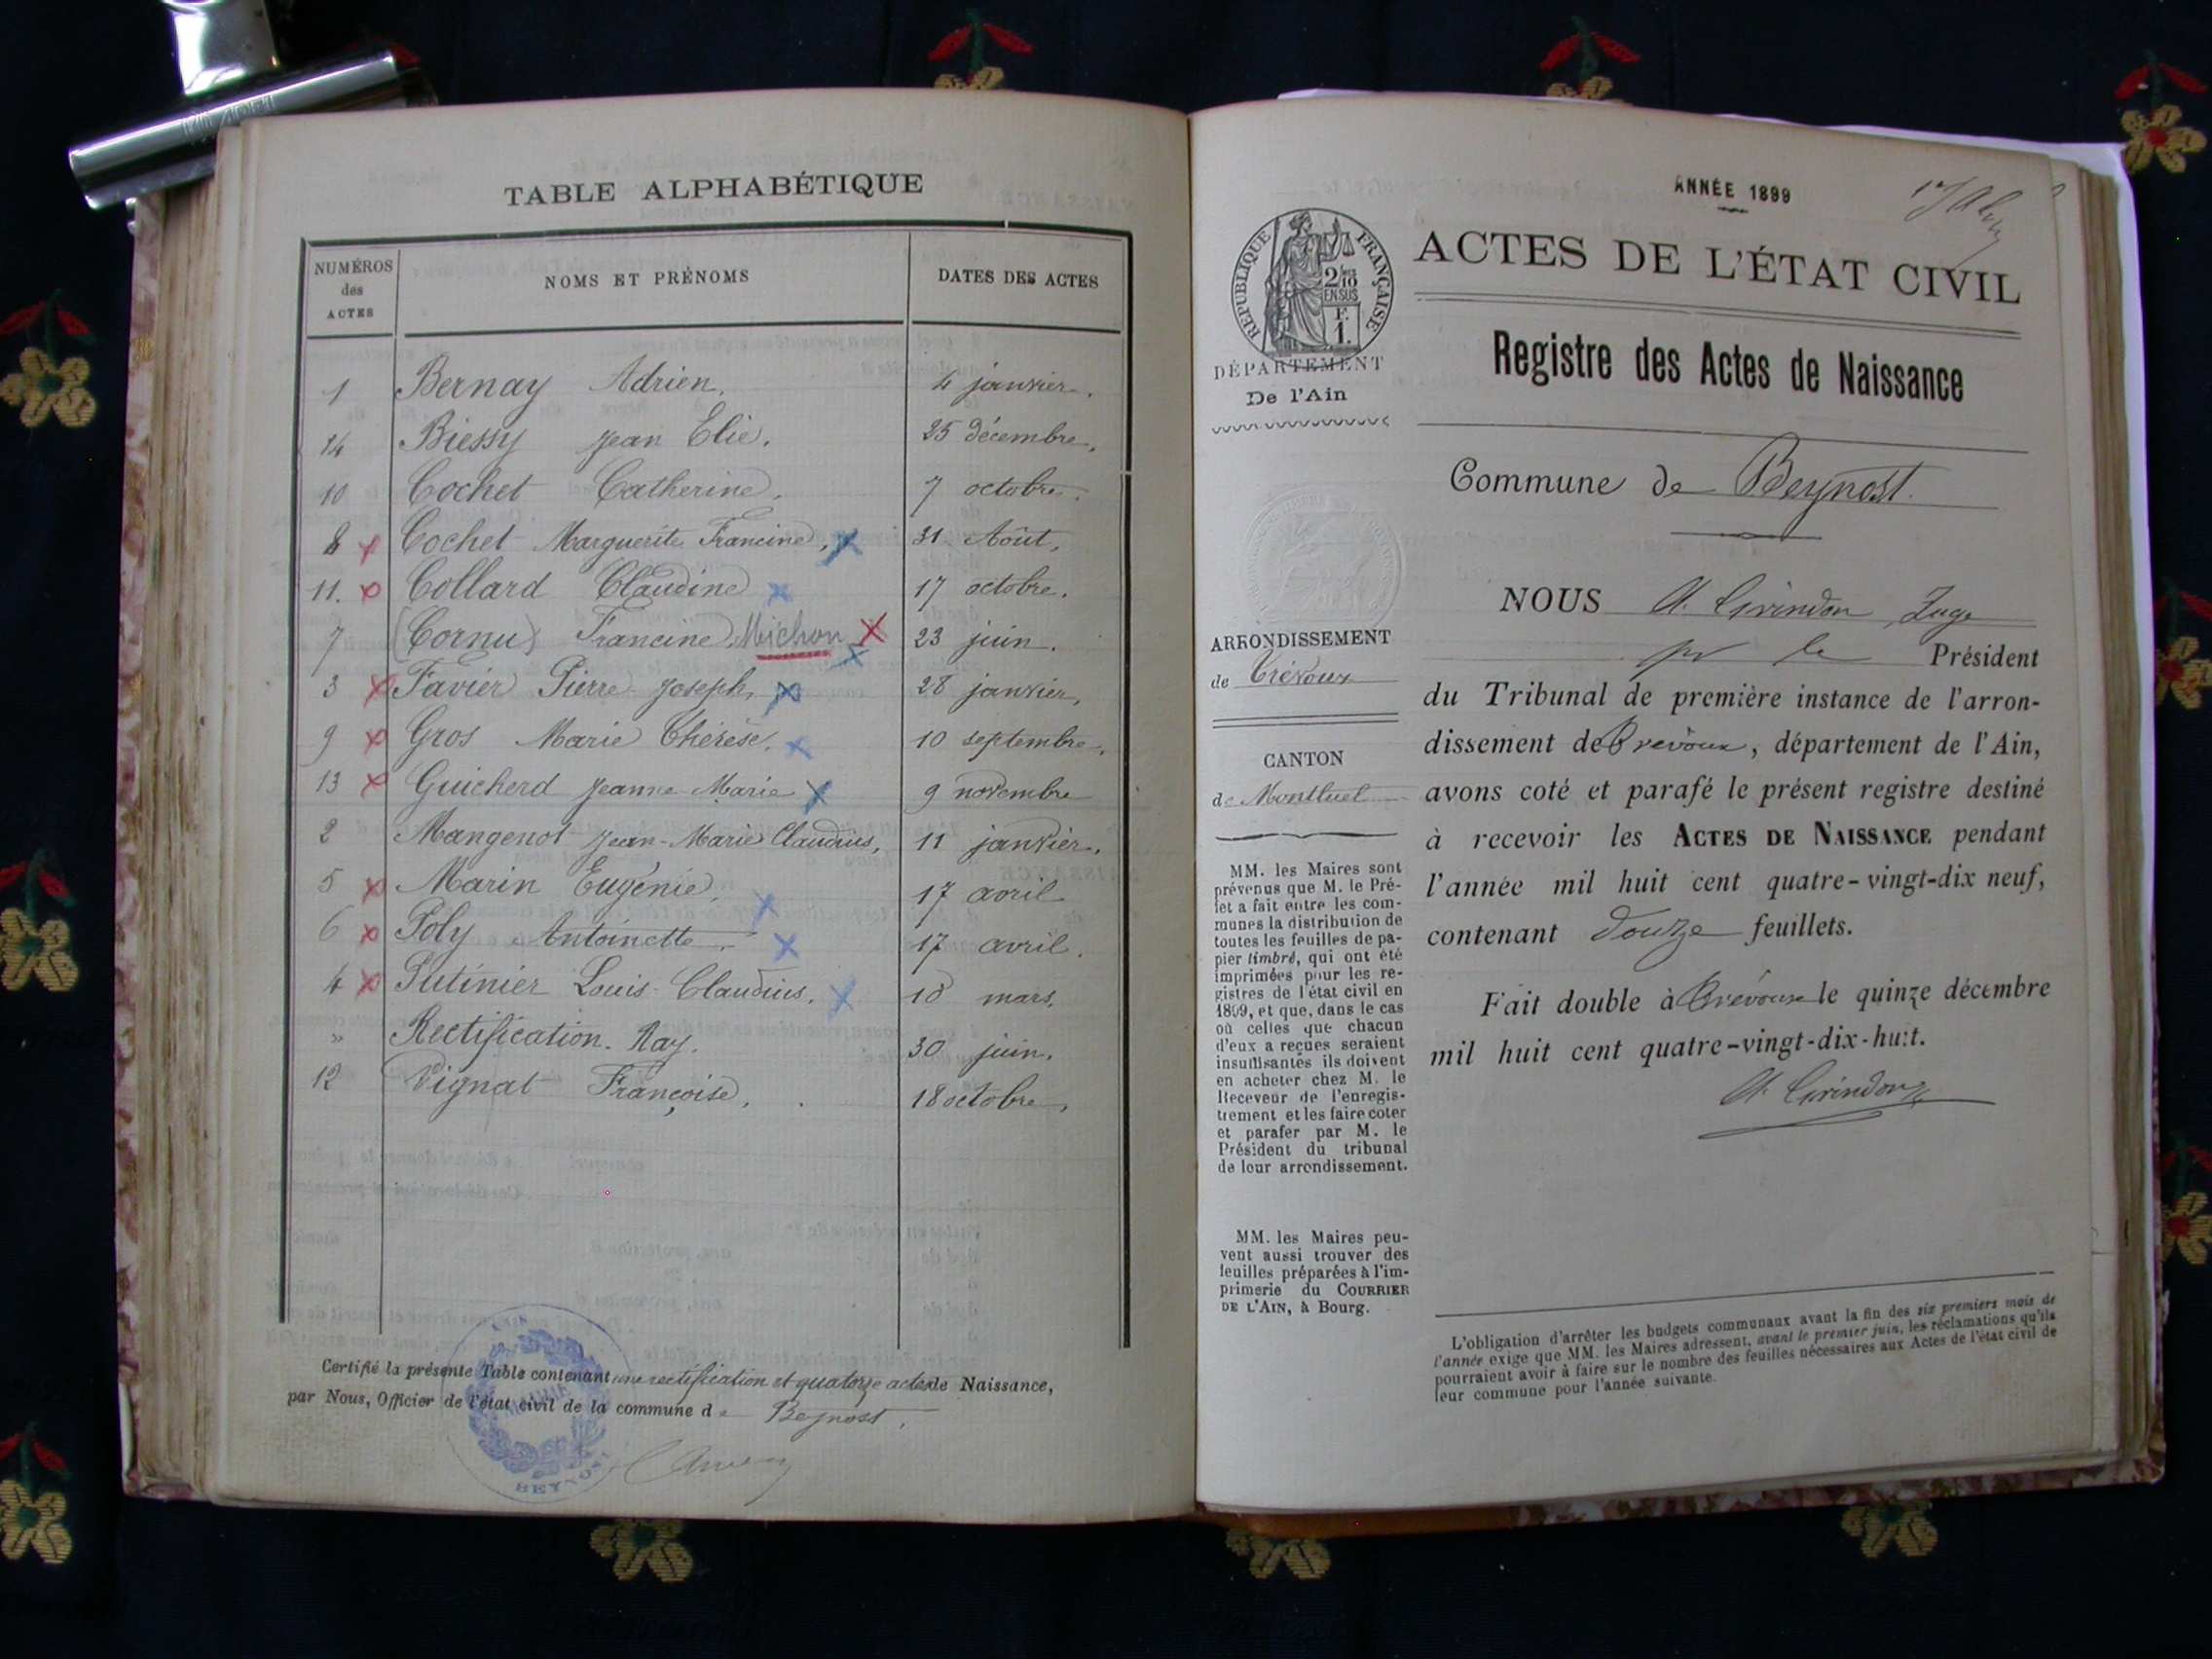 TABLE ALPHABÉTIQUE
NUMÉROS des ACTES NOMS ET PRÉNOMS DATES DES ACTES
1 Bernay Adrien. 4 janvier.
14 Biessy Jean Elie. 25 décembre.
10 Cochet Catherine. 7 octobre.
8 Cochet Marguerite Francine. 31 Août.
11. Collard Claudine 17 octobre.
7 (Cornu) Francine. Michon 23 juin.
3 Favier Pierre Joseph. 28 janvier.
9 Gros Marie Thérèse. 10 septembre.
13 Guicherd Jeanne Marie 9 novembre
2 Mangenot Jean-Marie Claudius, 11 janvier.
5 Marin Eugénie. 17 avril
6 Poly Antoinette. 17 avril.
4 Putinier Louis-Claudius. 18 mars.
" Rectification. Ray. 30 juin.
12 Vignat Françoise. 18 octobre.
Certifié la présente Table contenant une rectification et quatorze actes de Naissance,
par Nous, Officier de l'état civil de la commune de Beynost.
MAIRIE
BEYNOST
ANNÉE 1899
ACTES DE L'ÉTAT CIVIL
RÉPUBLIQUE FRANÇAISE
2/10
EN SUS
F.
1.
DÉPARTEMENT
De l'Ain
Registre des Actes de Naissance
Commune de Beynost.
ARRONDISSEMENT
de Trévoux
CANTON
de Montluel
MM. les Maires sont
prévenus que M. le Pré-
fet a fait entre les com-
munes la distribution de
toutes les feuilles de pa-
pier timbré, qui ont été
imprimées pour les re-
gistres de l'état civil en
1899, et que, dans le cas
où celles que chacun
d'eux a reçues seraient
insuffisantes ils doivent
en acheter chez M. le
Receveur de l'enregis-
trement et les faire coter
et parafer par M. le
Président du tribunal
de leur arrondissement.
MM. les Maires peu-
vent aussi trouver des
feuilles préparées à l'im-
primerie du COURRIER
DE L'AIN, à Bourg.
NOUS Juge
pr le Président
du Tribunal de première instance de l'arron-
dissement de Trévoux, département de l'Ain,
avons coté et parafé le présent registre destiné
à recevoir les ACTES DE NAISSANCE pendant
l'année mil huit cent quatre-vingt-dix neuf,
contenant douze feuillets.
Fait double à Trévoux le quinze décembre
mil huit cent quatre-vingt-dix-huit.
L'obligation d'arrêter les budgets communaux avant la fin des six premiers mois de
l'année exige que MM. les Maires adressent, avant le premier juin, les réclamations qu'ils
pourraient avoir à faire sur le nombre des feuilles nécessaires aux Actes de l'état civil de
leur commune pour l'année suivante.